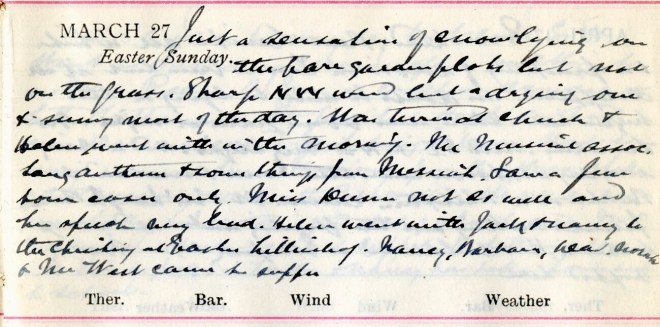 MARCH 27 Just a sensation of snow lying on
Easter Sunday. the bare garden plots but not
on the grass. Sharp NW wind but a drying one
& sunny most of the day. Was twice at church &
Helen went with me this morning. The Musical assoc.
sang anthem & something from Messiah. Saw a few
some cases only. Miss Dunn not so well and
her speech very bad. Helen went with Jack & Nancy to
the Christening at Nancy, Barbara,
& Mr West came to supper
Ther. Bar. Wind Weather